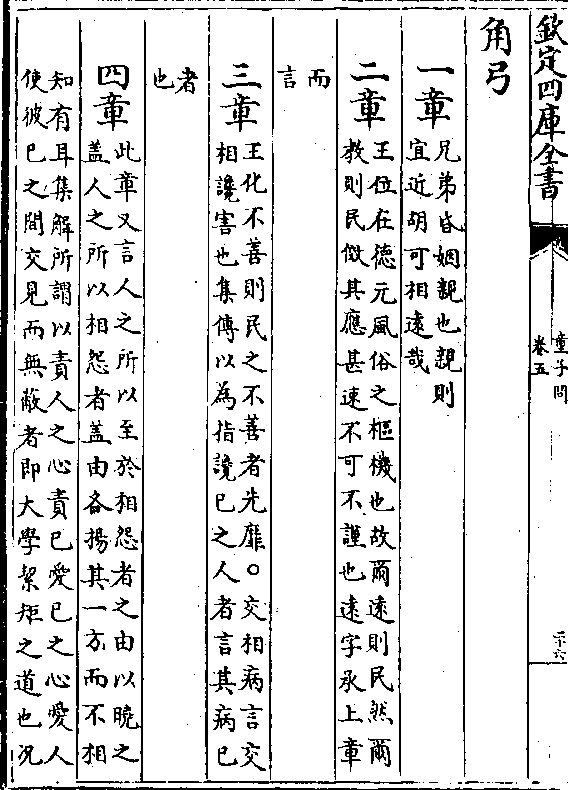 欽定四庫全書
童子問
卷五
二十六
角弓
一章兄弟昏姻親也親則
宜近胡可相遠哉
二章王位在德元風俗之樞機也故爾遠則民然爾
教則民傚其應甚速不可不謹也遠字承上章
而
言
三章王化不善則民之不善者先靡○交相病言交
相讒害也集傳以為指讒已之人者言其病已
者
也
四章此章又言人之所以至於相怨者之由以曉之
盖人之所以相怨者盖由各揚其一方而不相
知有耳集解所謂以責人之心責已愛已之心愛人
使彼已之間交見而無蔽者即大學絜矩之道也況